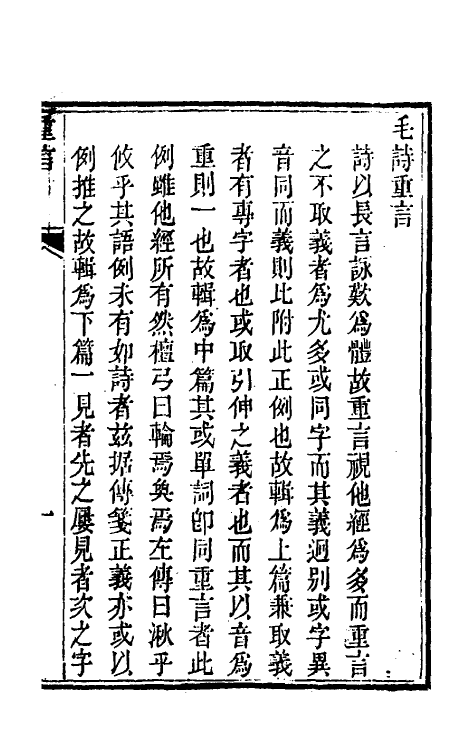 毛詩重言
詩以長言詠歎爲體故重言視他經爲多而重言
之不取義者爲尤多或同字而其義迥别或字異
音同而義則比附此正例也故輯爲上篇兼取義
者有專字者也或取引伸之義者也而其以音爲
重則一也故輯爲中篇其或單詞卽同重言者此
例雖他經所有然檀弓曰輪焉奐焉左傳曰湫乎
攸乎其語例未有如詩者兹据傳箋正義亦或以
例推之故輯爲下篇一見者先之屢見者次之字
重言
一